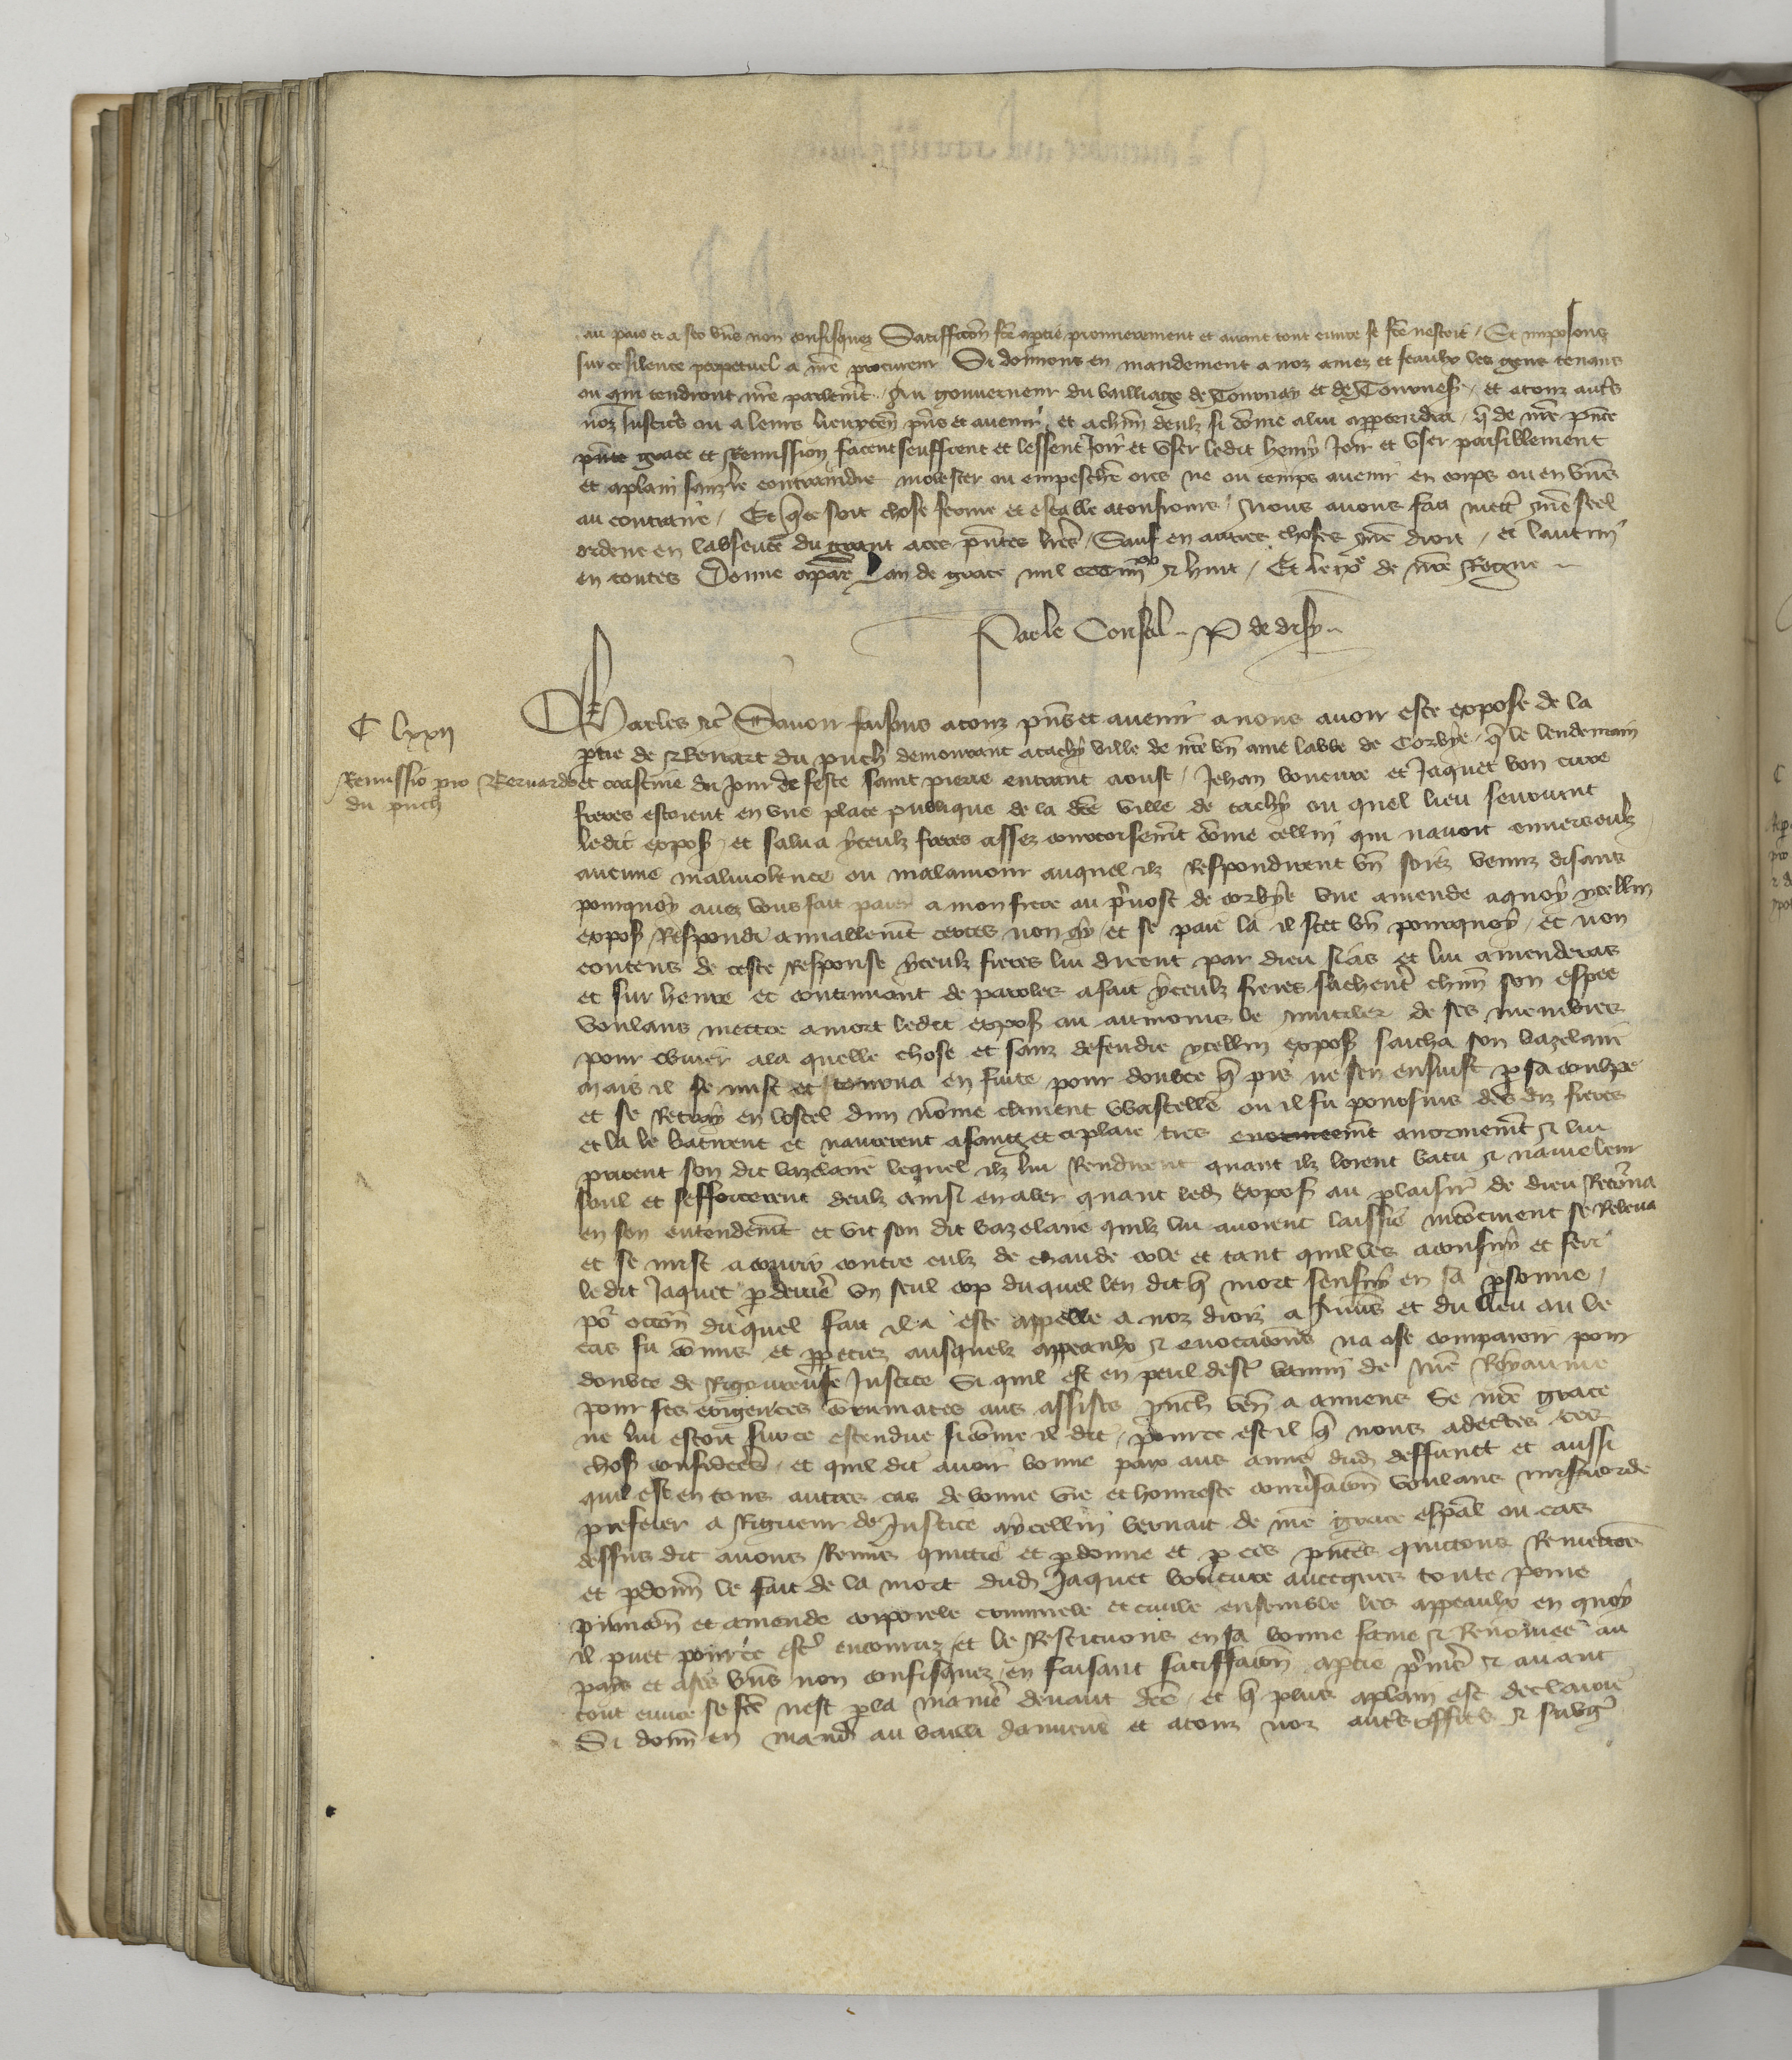 au pais et a ses bñs non confisquez Satisfaccion fce a partie premierement et avant tout euvre se fce nestoit / Et imposons
sur ce silence perpetuel a nre procureur Si donnons en mandement a noz amez et feaulx les gens tenans
ou qui tendront nre parlemt / Au gouverneur du bailliage de Tournay et de Tournes / et a touz autres
noz Justics ou a leurs lieuxten pns et avenir et a chun deulx si come a lui appartendra / q de nre pnte
pnte grace et Remission facent seuffrent et lessent Joir et user ledit henry Joir et user paisiblement
et a plain sanz le contraindre molester ou empeschier ores ne ou temps avenir en corps ou en biens
au contraire / Et q ce soit chose ferme et estable a tousiours / Nous avons fait mett nre seel
ordene en labsence du grant a ces pntes lres / Sauf en autres choses nre droit / et lautruy
en toutes Donne a paris Lan de grace mil ccc iiijxx et huit / Et le ixe de nre Regne
Par le Conseil P de disy
Charles etc Savoir faisons a touz pns et avenir a nous avoir este expose de la
ptie de Bernart du puch demourant a tachy ville de nre bn ame labbe de Corbye / q le lendemain
C lxxij
Remissio pro Bernardo
du puch
et crastine du Jour de feste saint pierre entrant aoust / Jehan bon cuve et Jaquet bon cuve
freres estoient en une place publique de la dce ville de tachy ou quel lieu seurvint
ledit expos et salua yceulx freres assez courtoisemt come cellui qui navoit enverseulx
aucune malivolence ou malamour auquel ilz Respondirent bn soiez venuz disans
pourquoy avez vous fait paier a mon frere au prevost de corbye une amende a quoy ycellui
expos Respondi amiablemt certes non ay et se paie la il scet bn pourquoy / et non
contens de ceste Response yceulx freres lui dirent par dieu si as et lui amenderas
et sur heure et continuant de paroles a fait yceulx freres sachent chun son espee
voulans mettre a mort ledit expos ou au moins le mutiler de ses membres
pour obvier a la quelle chose et sanz defendre ycellui expos saicha son bazelaire
mais il se mist et tourna en fuite pour doubte q pis ne sen ensuist p sa coulpe
et se Retray en lostel dun nome climent Wastelle ou il fu poursuis des diz freres
et la le batirent et navrerent a sang et a plaie tres enormeemt anormemt et lui
prirent son dit bazelaire lequel ilz lui Rendirent quant ilz lorent batu et navre leur
soul et sefforcerent deulx ainsi en aler quant led expos au plaisir de dieu Retorna
en son entendemt et vit son dit bazelaire quilz lui avoient laissie incontinent se Releva
et se mist a courir contre eulx de chaude cole et tant quil les aconsuy et feri
le dit Jaquet p derrie un seul cop duquel len dit q mort sensuy en sa psonne /
po occon du quel fait il a este appelle a noz droiz a Amiens et du lieu au le
cas fu comis et ppetrez ausquelz appeaulx et evocacions na ose comparoir pour
doubte de Rigoureuse Justice Si quil est en peril dest banni de nre Royaume
pour ses exigences contumaces aus assises a amiens Se nre grace
ne lui estoit sur ce estendue si come il dit / pource est il q nous a dectes ces
chos considerees / et quil dit avoir bonne paix aus amis dud deffunct et aussi
quil est en tous autres cas de bonne vie et honneste conversacion voulans misericorde
preferer a Rigueur de Justice a ycellui bernart de nre grace espal ou cas
dessus dit avons Remis quictie et pdonne et p ces pntes quictons Remettons
et pdonn le fait de la mort dud Jaquet bon cuve avecques toute peine
punicion et amende corporele criminele et civile ensemble les appeaulx en quoy
il puet pource est encouruz et le Restituons en sa bonne fame et Renomee au
pays et a ses bñs non confisquez / en faisant satisfacion a ptie prmt et avant
tout euvre se fce nest p la manie devant dce / et q plus a plain est declairie
Si donn en mand au bailli damiens et a touz noz autres offics et subg